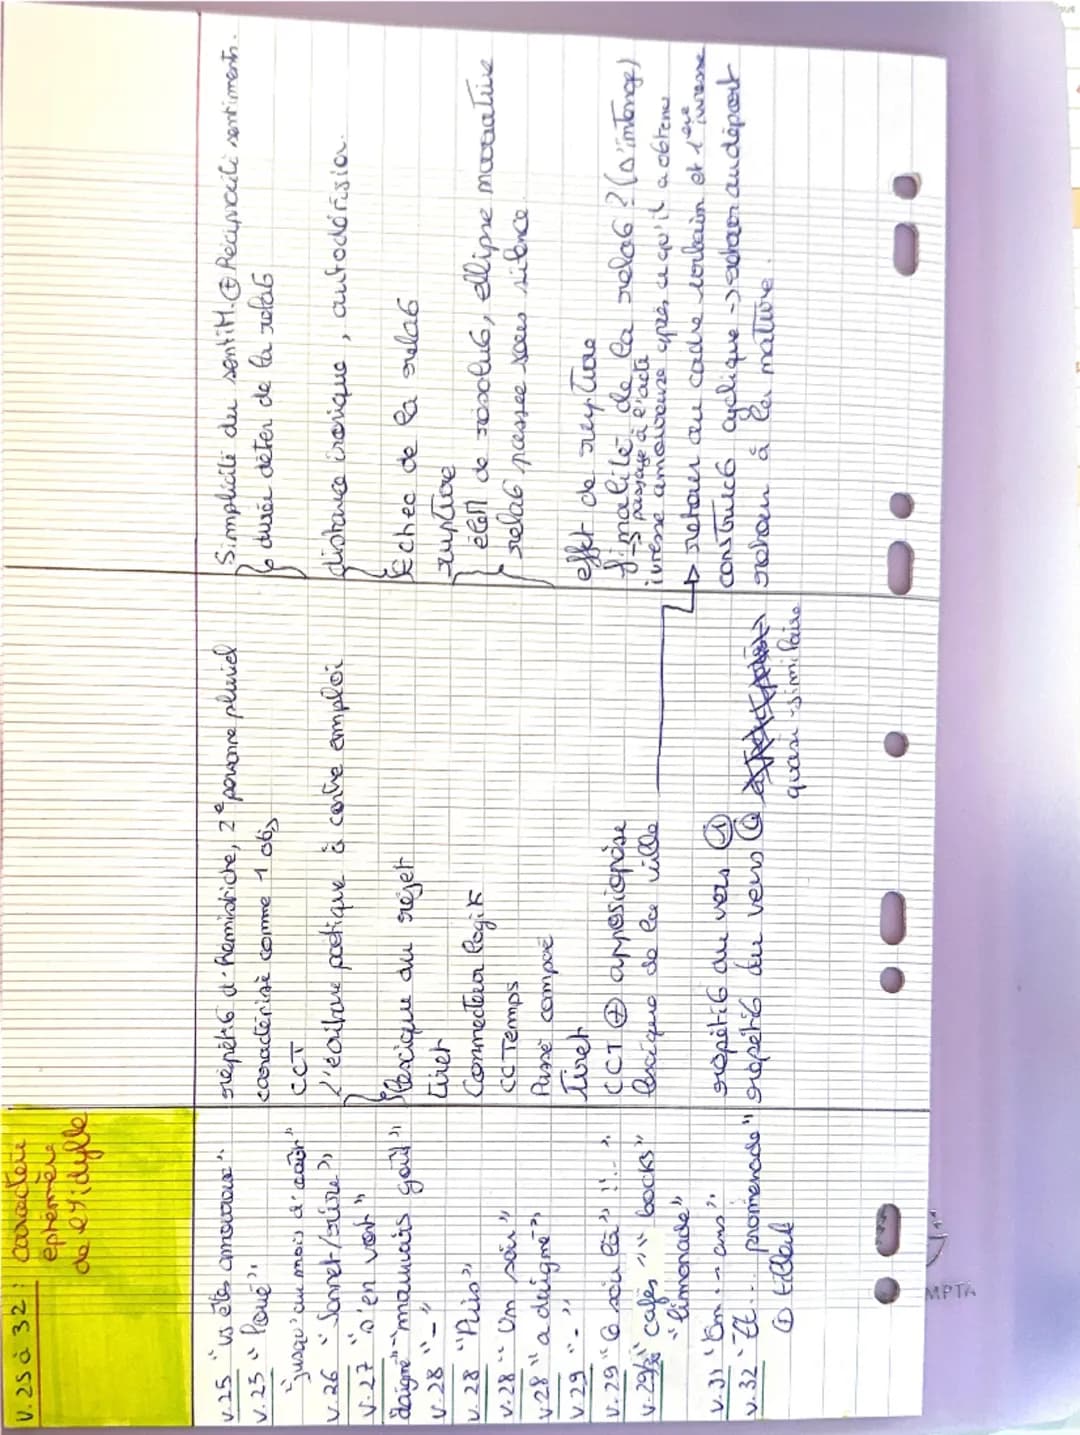 v.25 à 32 : caractère
éphémère
de l'idylle
v.25 "vs êtes amoureux".
répét° d'hémistiche, 2e personne pluriel
Simplicité du sentiM. ⊕ Réciprocité sentiments.
v.25 "loué"
caractérisé comme 1 obj
"jusqu'au mois d'août"
CCT
durée déter de la relat°
v.26 "Sonnet/rire"
L'écriture poétique à contre emploi
distance ironique, autodérision.
v.27 "s'en vont"
"mauvais goût"
lexique du rejet
Echec de la relat°
v.28 "-"
tiret
rupture
v.28 "Puis"
Connecteur logik
v.28 "Un soir"
CCTemps
élém de résolut°, ellipse narrative
v28 "a daigné"
Passé composé
relat° passée sous silence.
v.29 "-"
Tiret
effet de rupture
v.29 "Ce soir là" !..."
CCT ⊕ aposiopèse
finalité de la relat° ? (
→ passage à l'acte
ivresse amoureuse après ce qu'il a obtenu
"cafés" "bocks"
"limonade"
lexique de la ville
→ retour au cadre urbain et 1ère ivresse
v.31 "On... ans".
répétit° du vers ①
construct° cyclique → retour au départ
v.32 "Et... promenade"
répétit° du vers
quasi-similaire
retour à la nature.
① tilleuls
MPTA